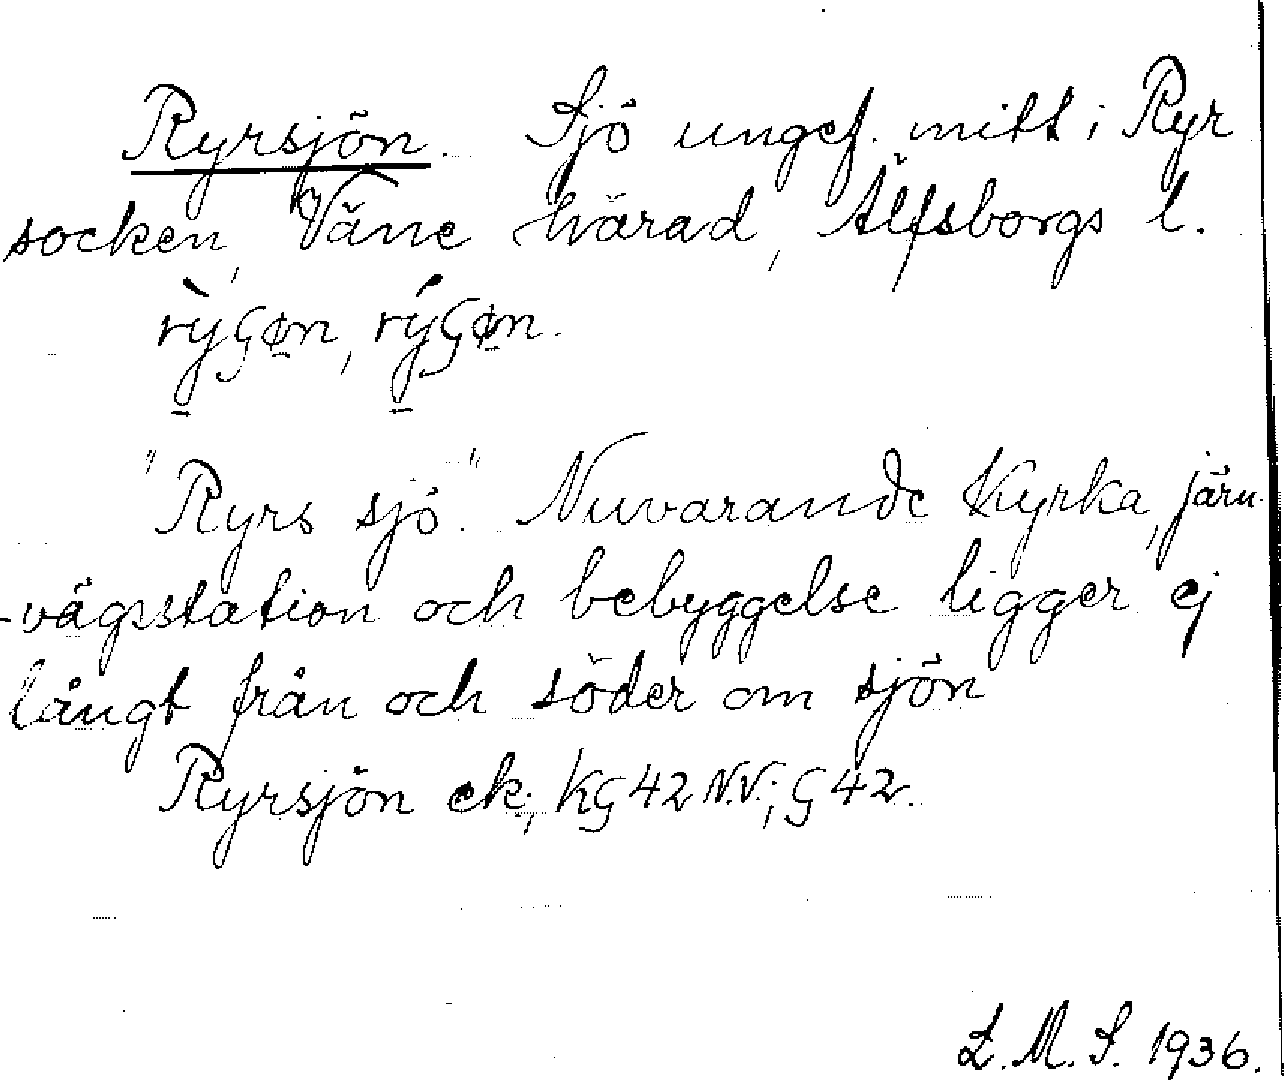 Ryrsjön. Sjö ungef. mitt i Ryr
socken, Väne härad, Älfsborgs l.
rỳʃøn, rýʃøn.
"Ryrs sjö". Nuvarande Kyrka, järn-
-vägsstation och bebyggelse ligger ej
långt från och söder om sjön
Ryrsjön ek; KG 42 N.V.; G 42.
L. M. S. 1936.